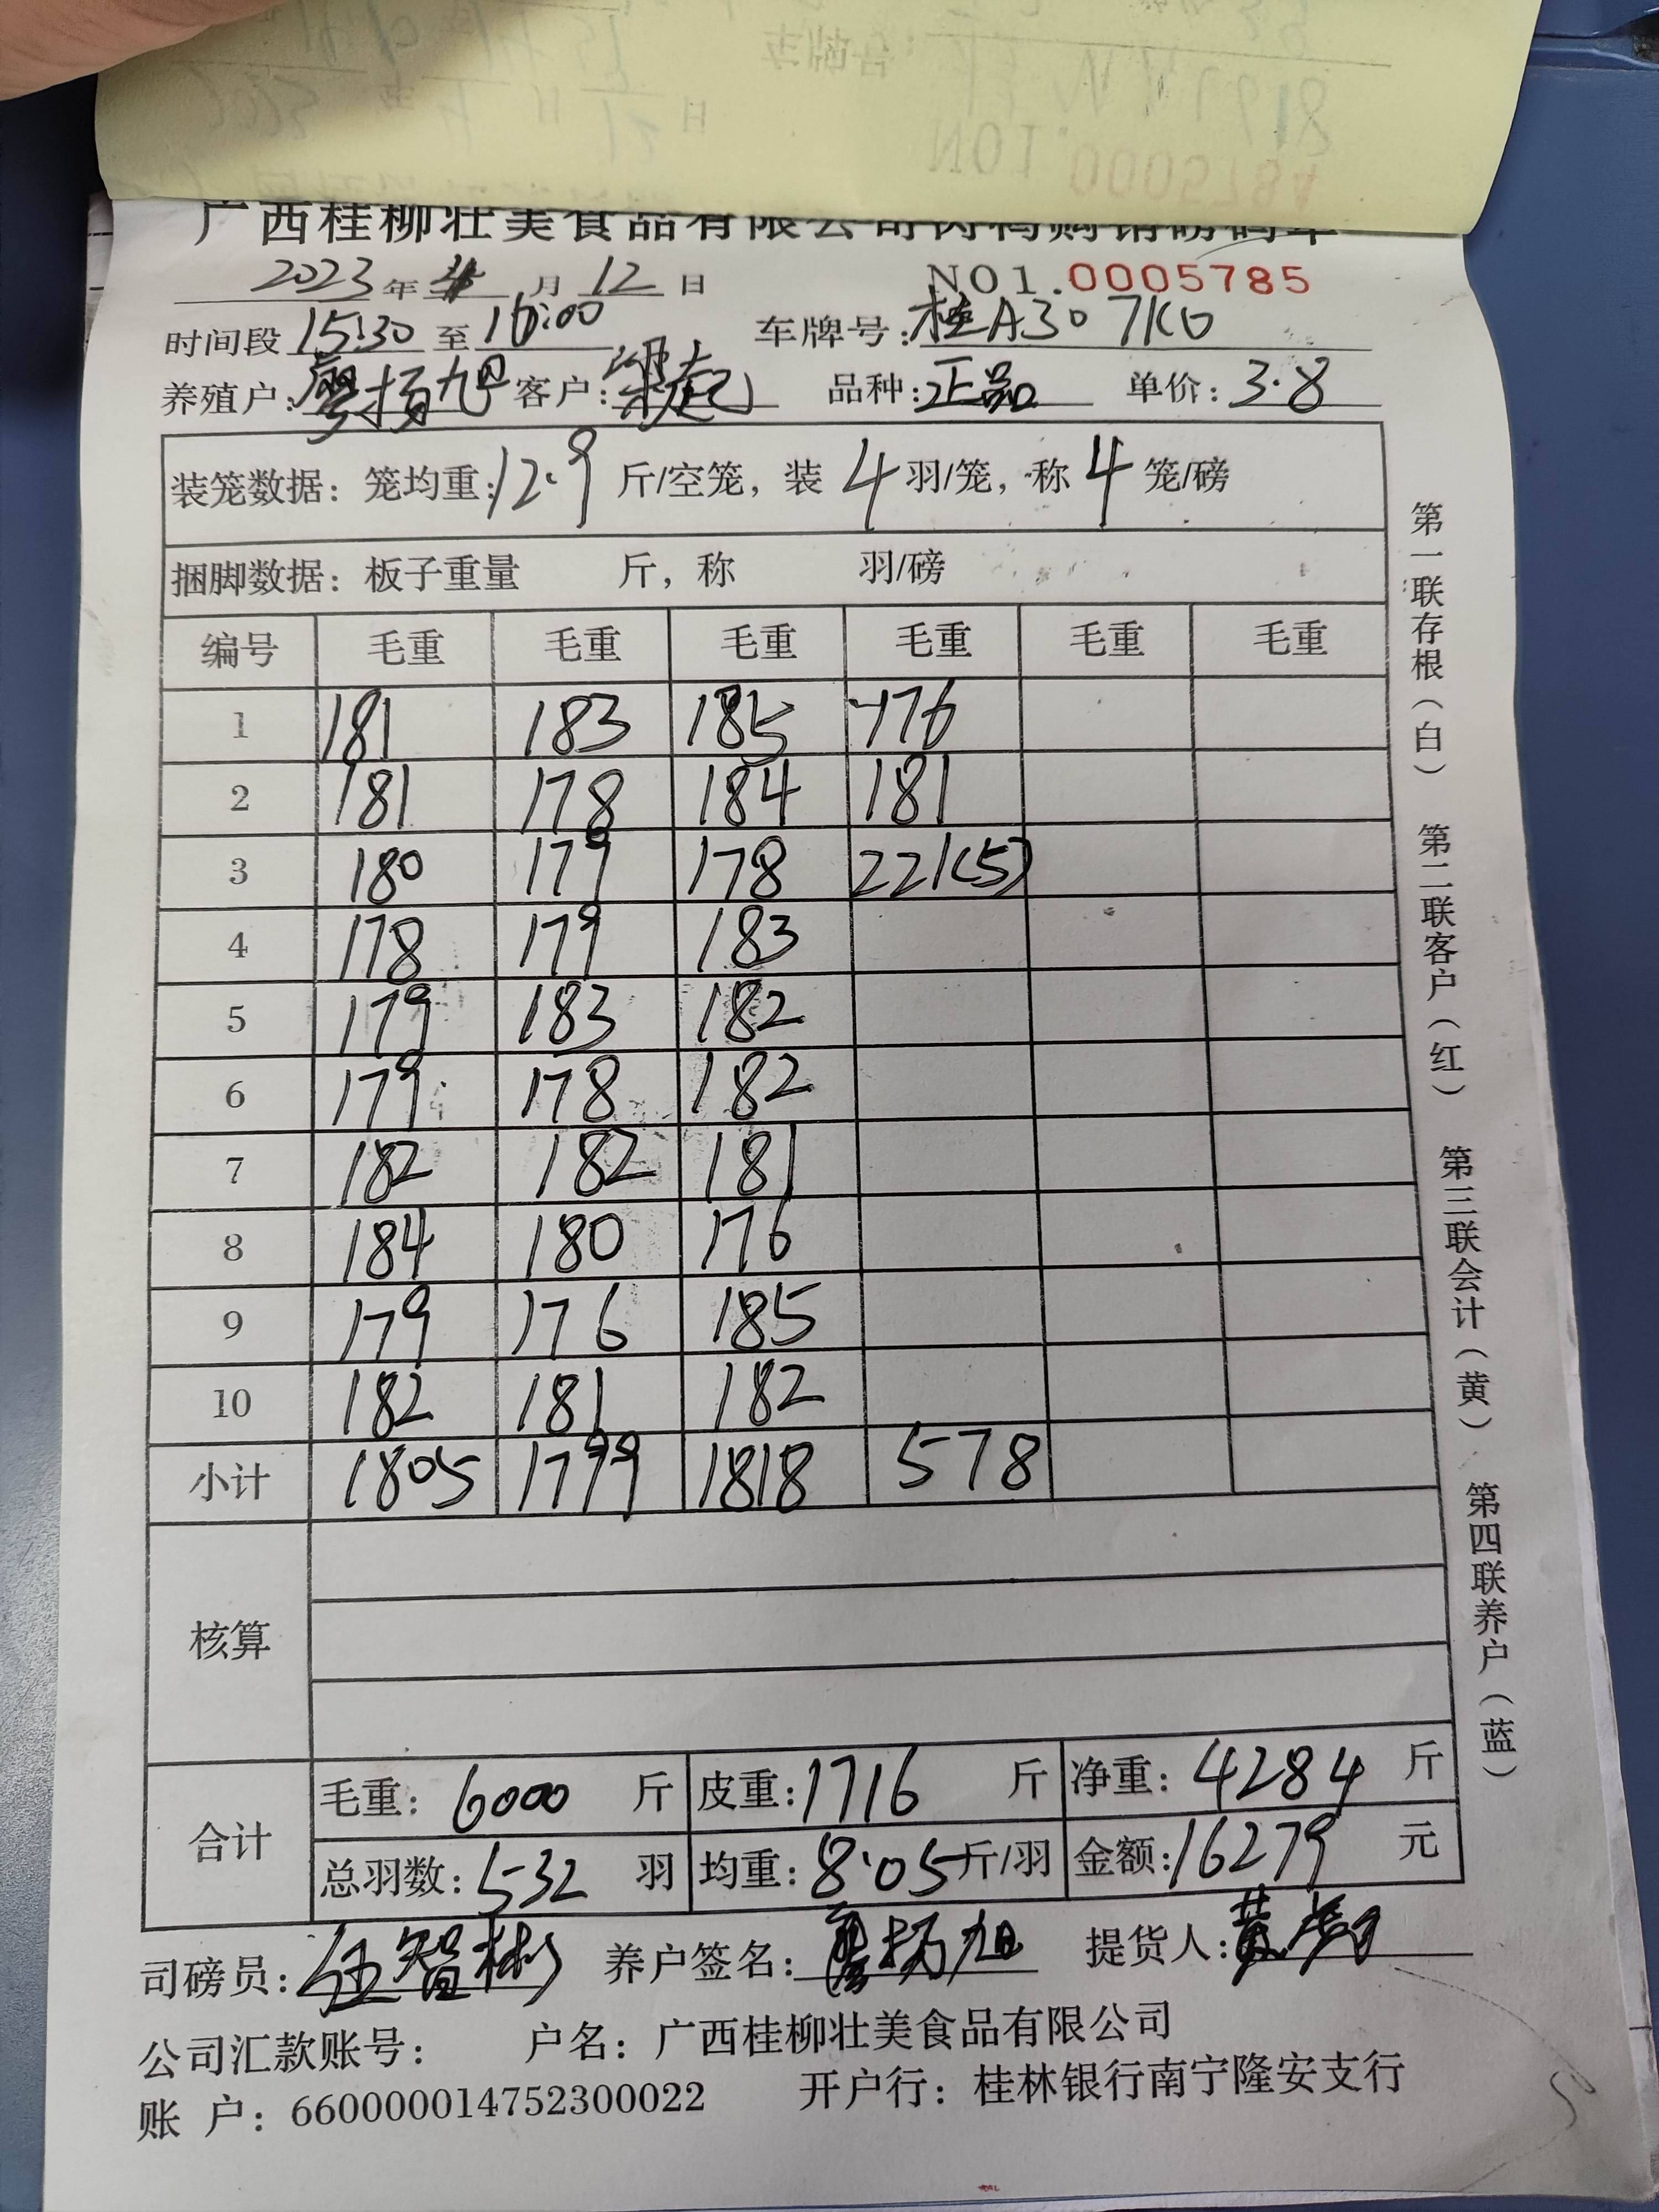 广西桂柳壮美食品有限公司肉鸭购销磅码单
2023年 月12日 NO1.0005785
时间段15:30至16:00 车牌号:桂A307KG
养殖户:廖扬旭 客户:梁起 品种:正品 单价:3.8
装笼数据:笼均重:12.9斤/空笼,装4羽/笼,称4笼/磅
捆脚数据:板子重量 斤,称 羽/磅
编号 毛重 毛重 毛重 毛重 毛重 毛重
1 181 183 185 176
2 181 178 184 181
3 180 179 178 221(5)
4 178 179 183
5 179 183 182
6 179 178 182
7 182 182 181
8 184 180 176
9 179 176 185
10 182 181 182
小计 1805 1799 1818 578
核算
合计 毛重:6000斤 皮重:1716斤 净重:4284斤
总羽数:532羽 均重:8.05斤/羽 金额:16279元
司磅员:伍智彬 养户签名:廖扬旭 提货人:黄
公司汇款账号: 户名:广西桂柳壮美食品有限公司
账 户:660000014752300022 开户行:桂林银行南宁隆安支行
第一联存根(白) 第二联客户(红) 第三联会计(黄) 第四联养户(蓝)